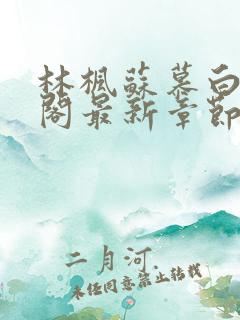 林楓蘇慕白
閣最新章節
二月河.
未经同意禁止转载